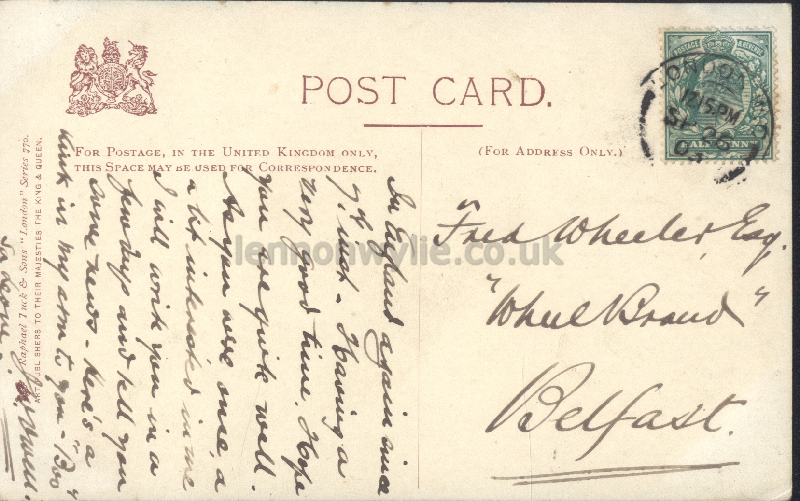 POST CARD.
FOR POSTAGE, IN THE UNITED KINGDOM ONLY,
THIS SPACE MAY BE USED FOR CORRESPONDENCE.
(FOR ADDRESS ONLY.)
POSTAGE & REVENUE
HALF PENNY
LONDON W.C
12 15 PM
Raphael Tuck & Sons "London" Series 770.
ART PUBLISHERS TO THEIR MAJESTIES THE KING & QUEEN.
In England again since
7th inst – Having a
very good time. Hope
you are quite well.
As you were once, a
a bit interested in me
I will write you in a
few days and tell you
some news – Here's a
kink in my arm to you – "Boo"
"Fred Wheeler, Esq.
"Wheel Brand"
Belfast.
lennonwylie.co.uk